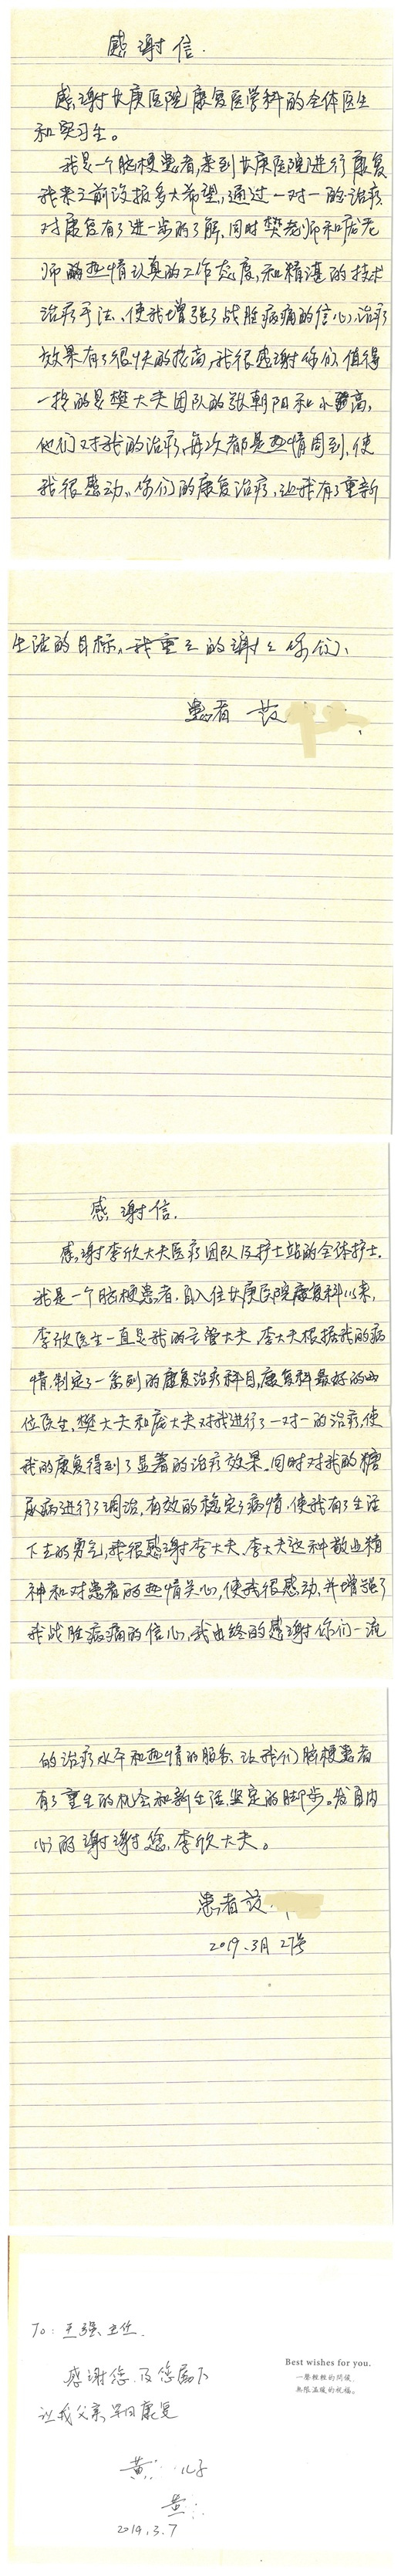 感谢信.
感谢长庚医院康复医学科的全体医生
和实习生。
我是一个脑梗患者,来到长庚医院进行康复
我来之前没报多大希望,通过一对一的治疗
对康复有了进一步的了解,同时樊老师和庞老
师的热情认真的工作态度,和精湛的技术
治疗手法、使我增强了战胜病痛的信心,治疗
效果有了很快的提高,我很感谢你们,值得
一提的是樊大夫团队的张朝阳和小高,
他们对我的治疗,每次都是热情周到,使
我很感动。你们的康复治疗,让我有了重新
生活的目标,我重重的谢谢你们、
患者
感谢信.
感谢李欣大夫医疗团队及护士站的全体护士.
我是一个脑梗患者,自入住长庚医院康复科以来,
李欣医生一直是我的主管大夫,李大夫根据我的病
情,制定了一系列的康复治疗科目,康复科最好的两
位医生,樊大夫和庞大夫对我进行了一对一的治疗,使
我的康复得到了显著的治疗效果.同时对我的糖
尿病进行了调治,有效的稳定了病情,使我有了生活
下去的勇气,我很感谢李大夫、李大夫这种敬业精
神和对患者的热情关心,使我很感动,并增强了
我战胜病痛的信心,我由终的感谢你们一流
的治疗水平和热情的服务、让我们脑梗患者
有了重生的机会和新生活,坚定的脚步。发自内
心的谢谢您,李欣大夫。
患者
2019.3月27号
To: 王强主任.
感谢您及您属下
让我父亲早日康复
黄 儿子
黄
2019.3.7
Best wishes for you.
一聲輕輕的問候
無限溫暖的祝福。